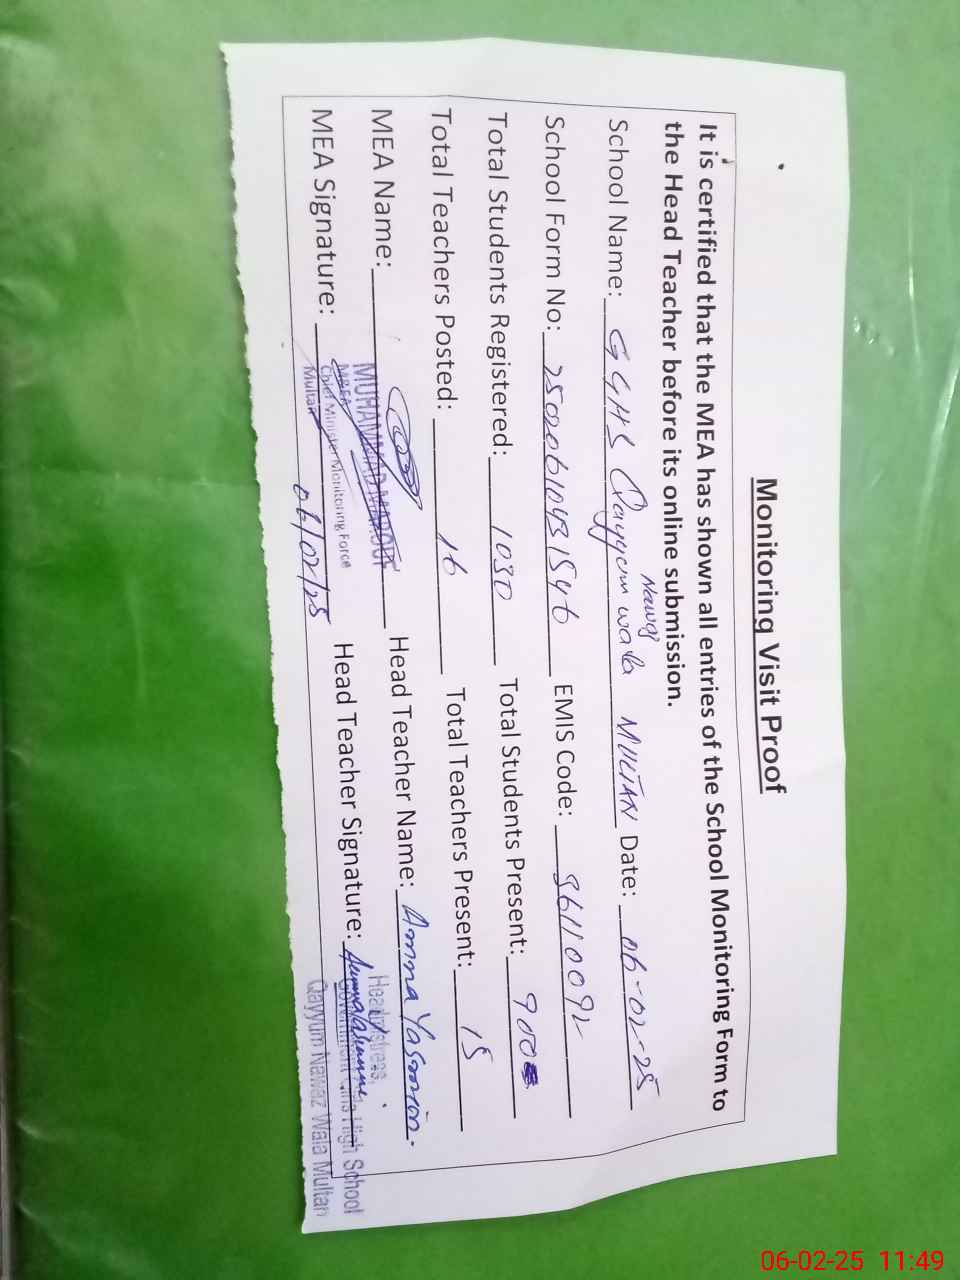 Monitoring Visit Proof
It is certified that the MEA has shown all entries of the School Monitoring Form to
the Head Teacher before its online submission.
Nawaz
School Name: GGHS Qayyum wala MULTAN Date: 06-02-25
School Form No: 25020610431546 EMIS Code: 36110092
Total Students Registered: 1030 Total Students Present: 900
Total Teachers Posted: 16 Total Teachers Present: 15
MEA Name: MUHAMMAD MAROOF Head Teacher Name: Amna Yasmin.
MEA Signature: Head Teacher Signature:
MEA
Chief Minister Monitoring Force
Multan
06/02/25
Headmistress,
Government Girls High School
Qayyum Nawaz Wala Multan
06-02-25 11:49